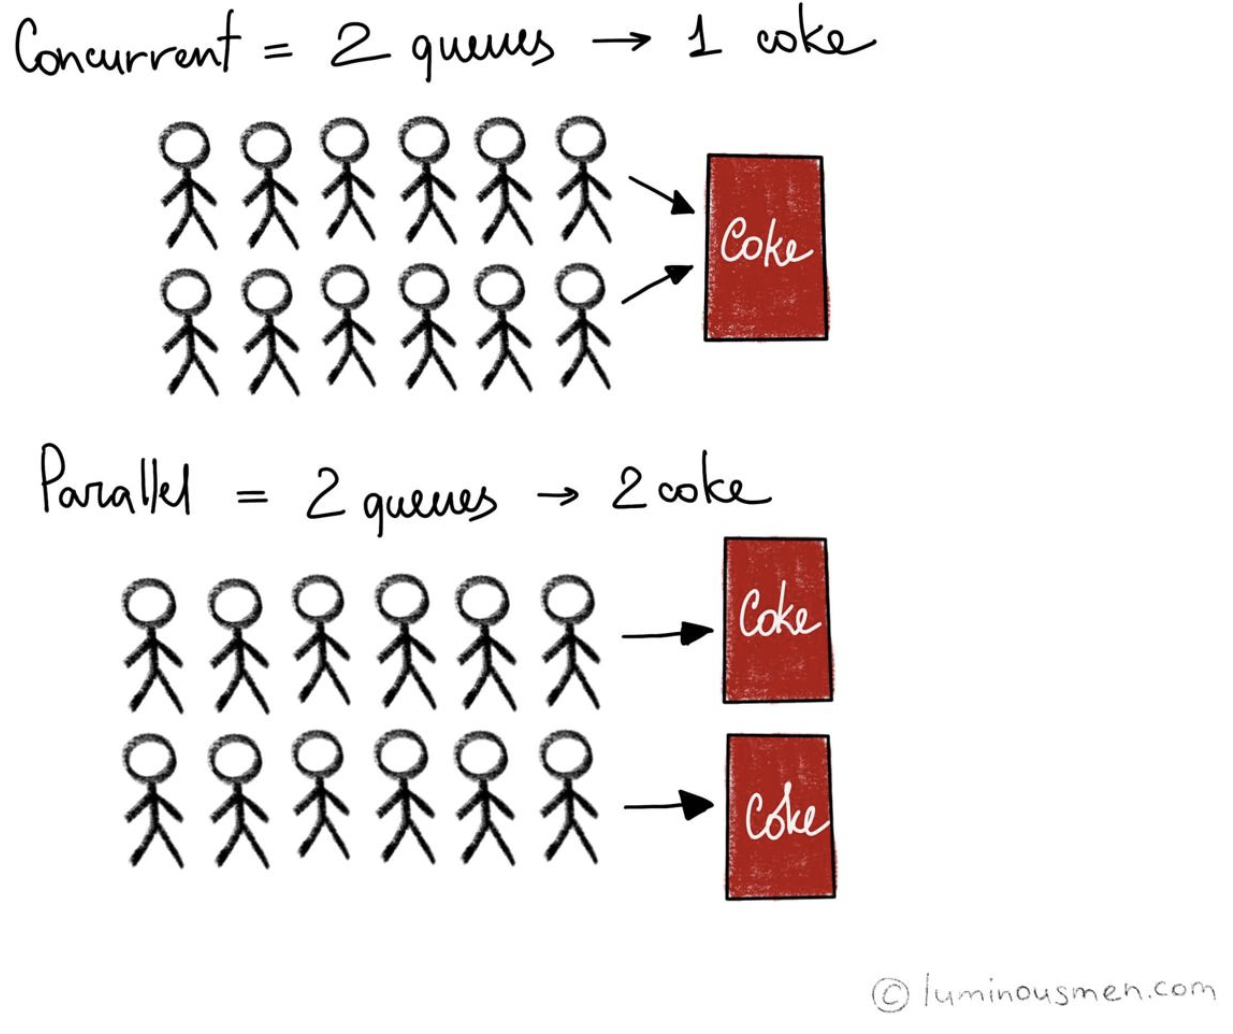 Concurrent = 2 queues → 1 coke
Coke
Parallel = 2 queues → 2 coke
Coke
Coke
© luminousmen.com